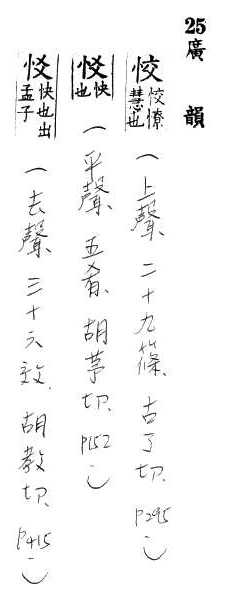 25廣韻
恔 恔憭慧也(上聲、二十九篠、古了切、P295)
恔 快也(平聲 五肴、胡茅切、P152)
恔 快也出孟子(去聲 三十六效、胡教切、P415)